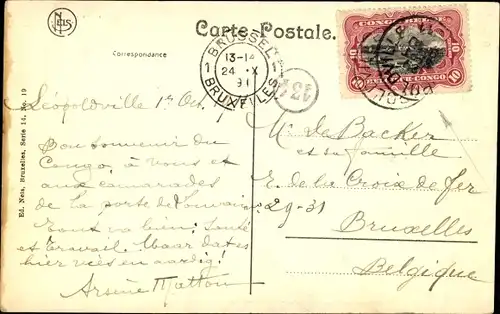 NELS
Carte Postale.
Correspondance
CONGO BELGE
10 10
BELGISCH CONGO
BRUSSEL
1 13-14 1
24 X
BRUXELLES
Léopoldville 1er Oct.
Bon souvenir du
Congo, à vous et
aux camarades
de la poste de Louvain
Tout va bien: Santé
et travail. Maar dat es
hier vies en aardig!
Arsène Matton
Mr De Backer
et sa famille
R. de la Croix de Fer
29-31
Bruxelles
Belgique
Ed. Nels, Bruxelles, Serie 14, No. 19